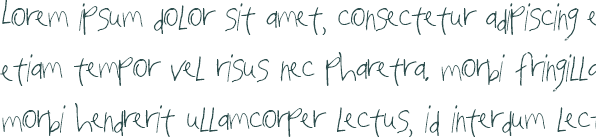 Lorem ipsum dolor sit amet, consectetur adipiscing e
etiam tempor vel risus nec pharetra. morbi fringilla
morbi hendrerit ullamcorper lectus, id interdum lect